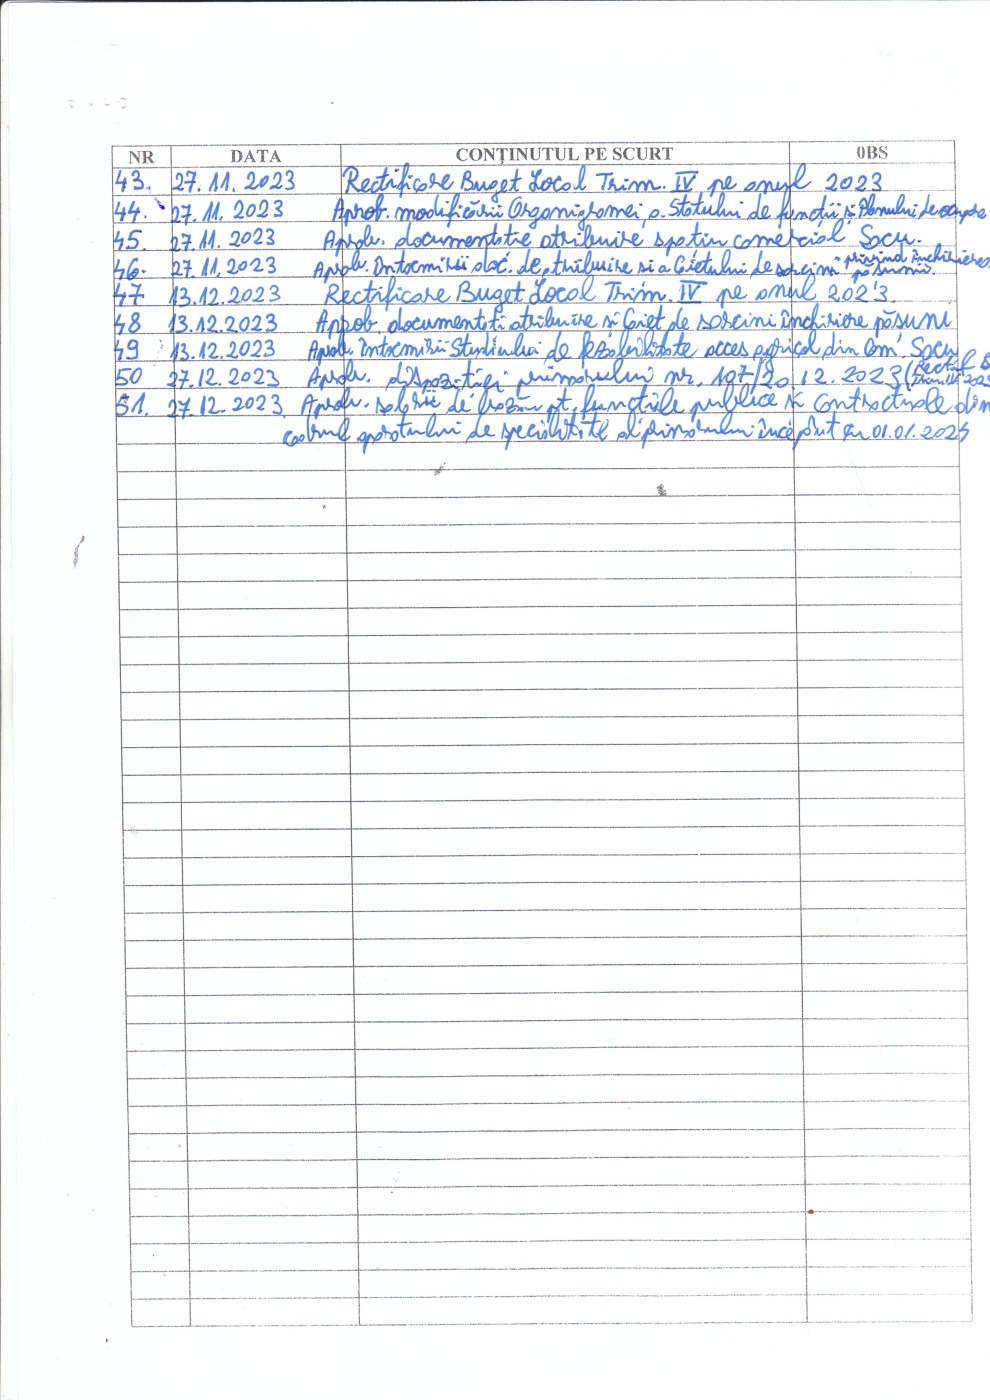 NR DATA CONȚINUTUL PE SCURT 0BS
43. 27.11.2023 Rectificare Buget Local Trim. IV pe anul 2023
44. 27.11.2023 Aprob. modificării Organigramei, a Statului de funcții și Planului de ocupare
45. 27.11.2023 Aprob. documentație atribuire spațiu comercial Sacu.
46. 27.11.2023 Aprob. întocmirii doc. de atribuire și a Caietului de sarcini privind închirierea pășunii
47 13.12.2023 Rectificare Buget Local Trim. IV pe anul 2023.
48 13.12.2023 Aprob. documentații atribuire și Caiet de sarcini închiriere pășuni
49 13.12.2023 Aprob. întocmirii Studiului de fezabilitate acces agricol din com. Sacu
50 27.12.2023 Aprob. dispoziției primarului nr. 107/20.12.2023 (Rectif B
51. 27.12.2023 Aprob. salarii de bază pt. funcțiile publice și contractuale din
cadrul aparatului de specialitate al primarului începînt cu 01.01.2024